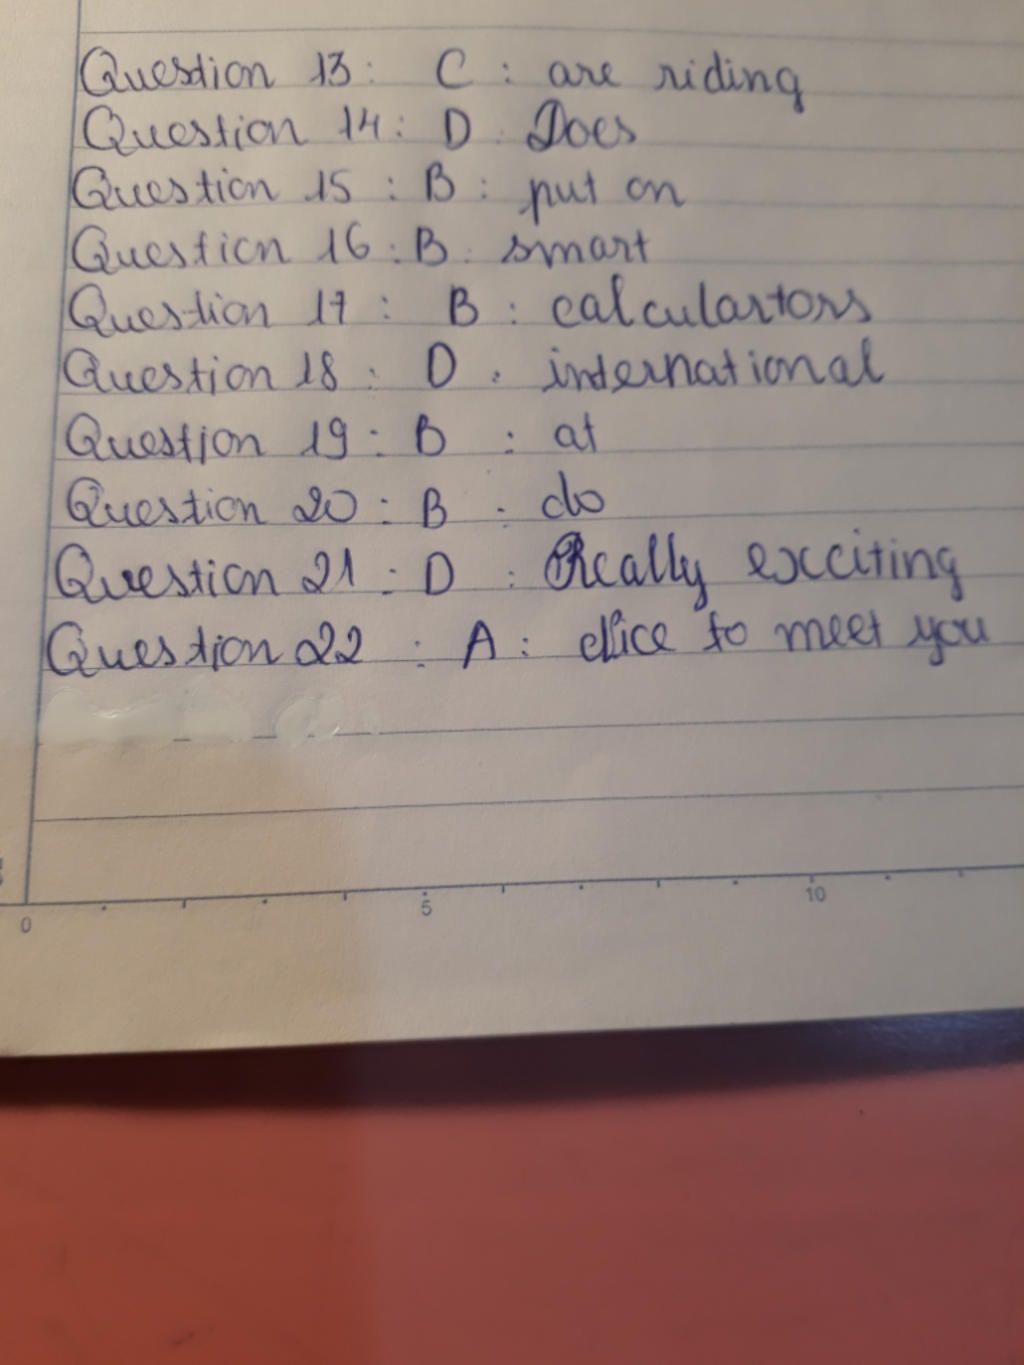 Question 13: C: are riding
Question 14: D: Does
Question 15: B: put on
Question 16: B: smart
Question 17: B: calculartors
Question 18: D: international
Question 19: B: at
Question 20: B: do
Question 21: D: Really exciting
Question 22: A: Nice to meet you
0 5 10